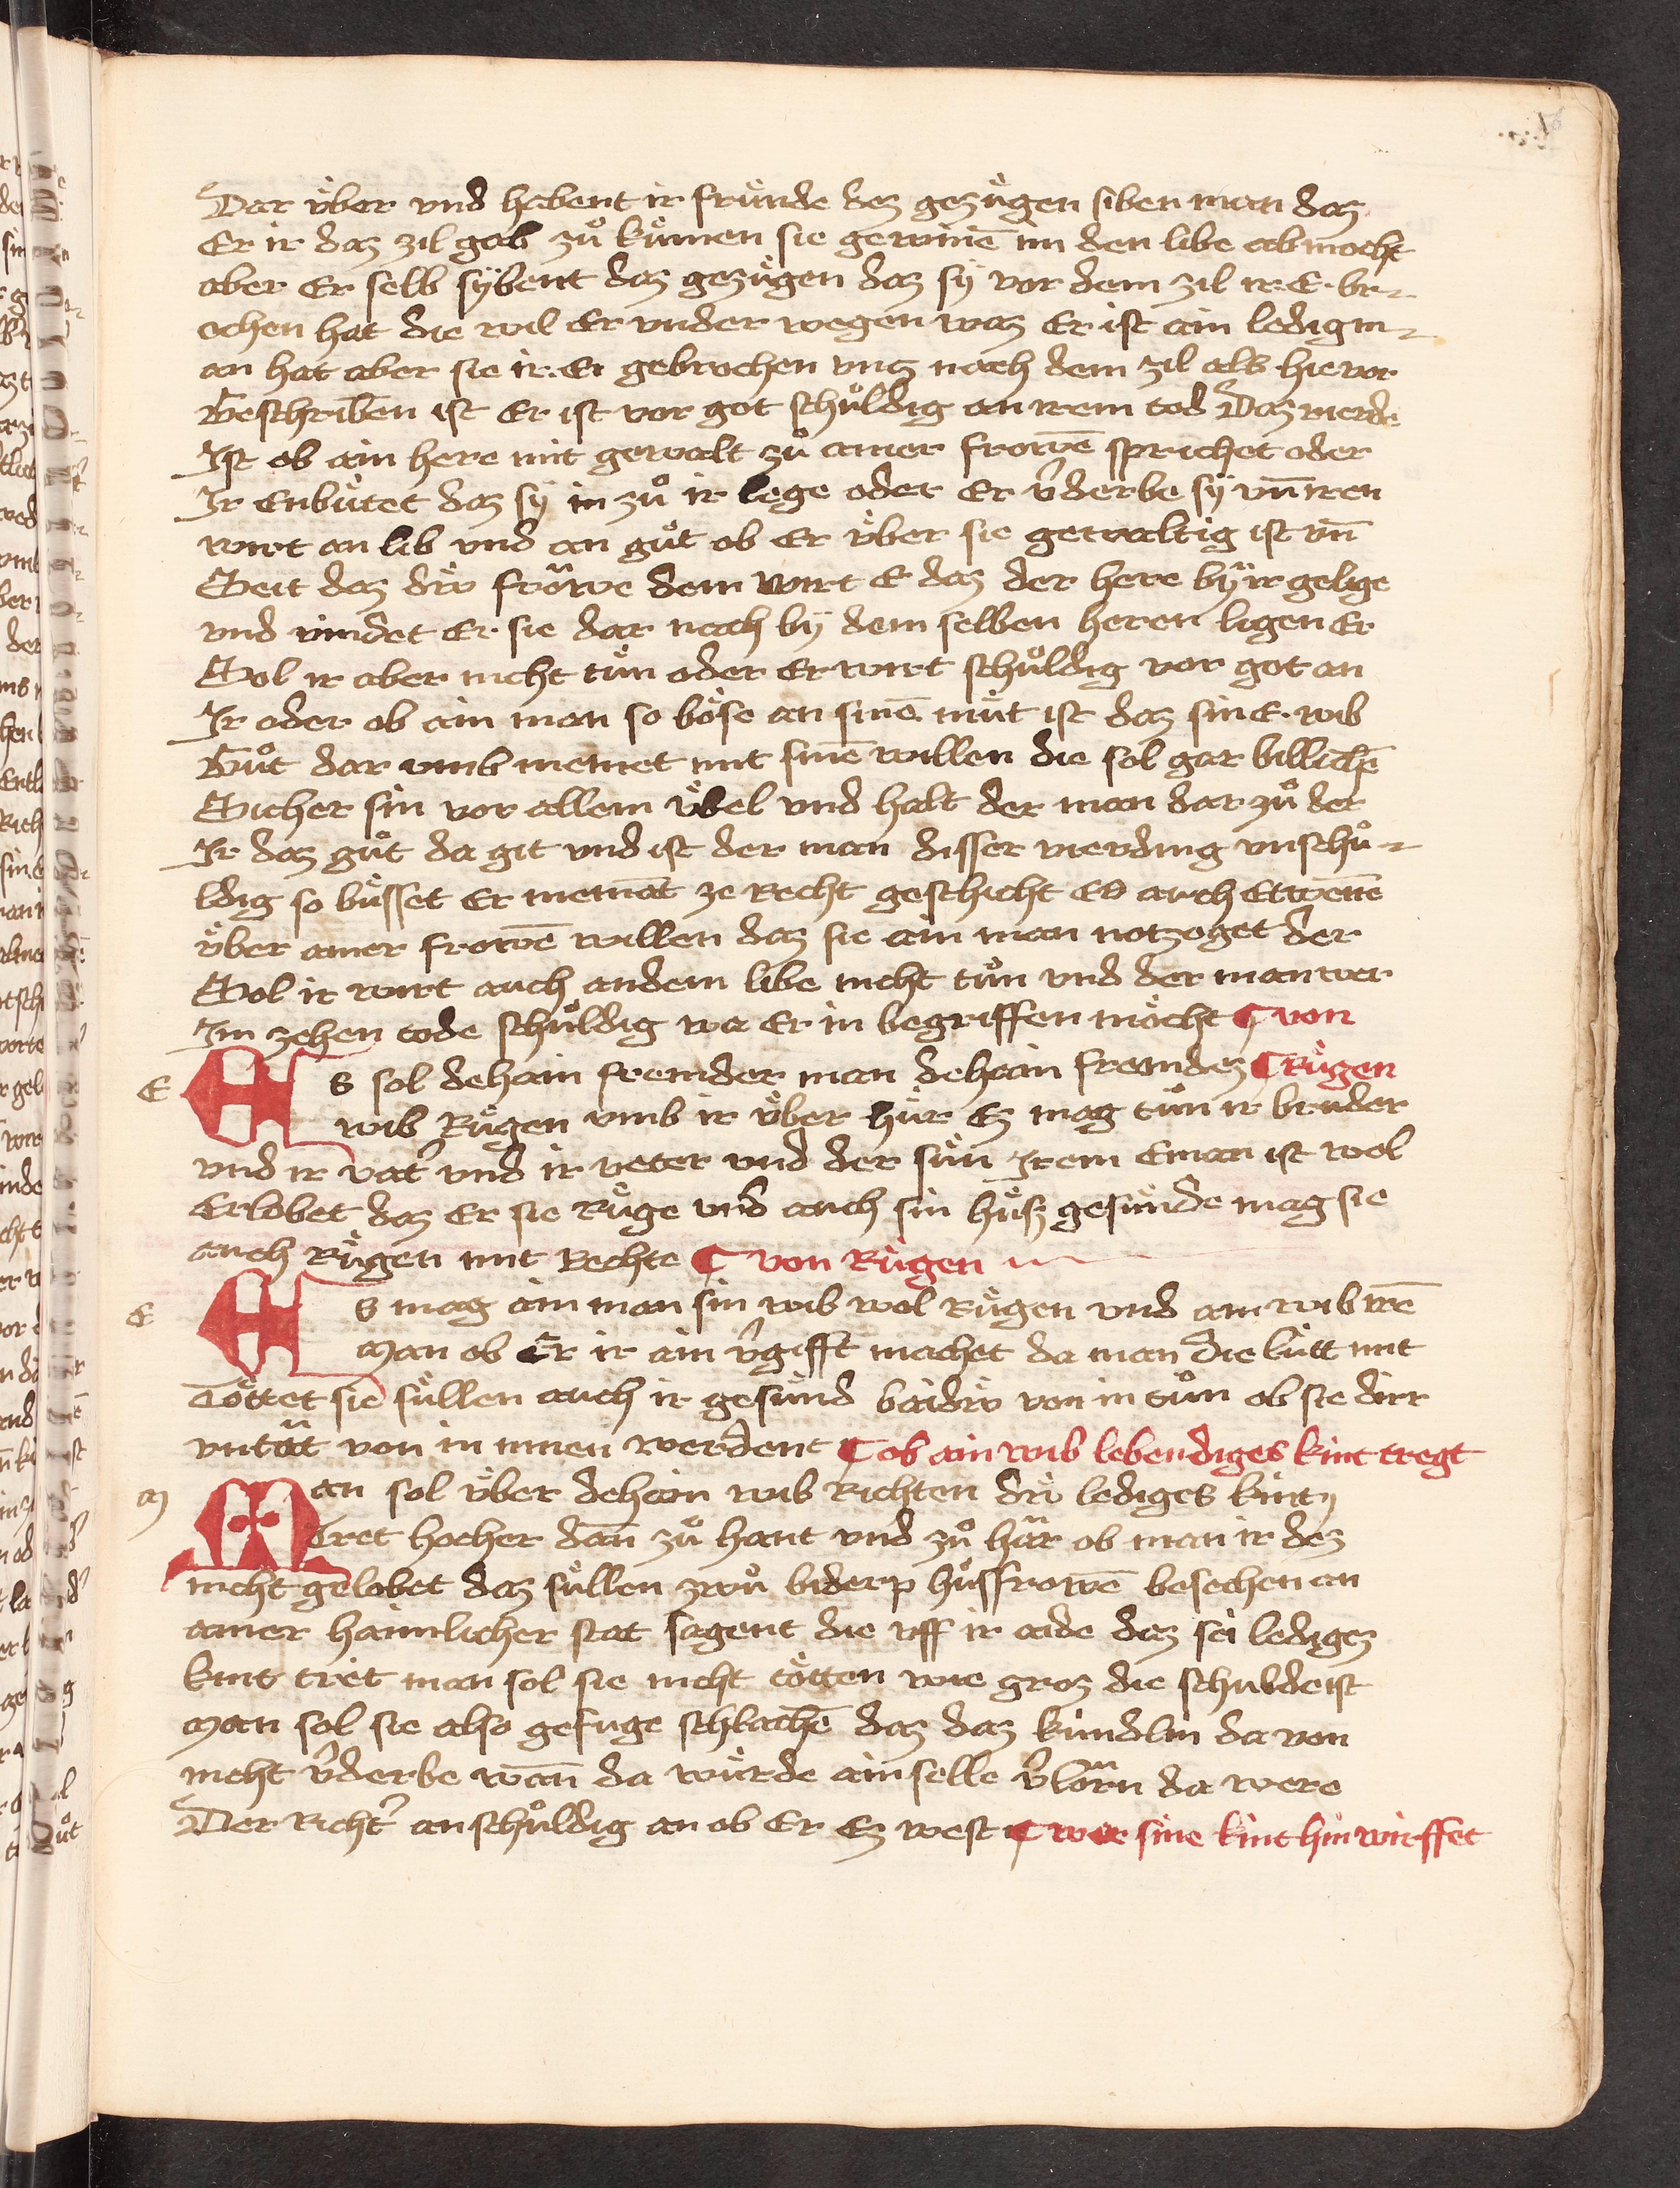 Dar ůber vnd habent ir frůnde des gezůgen siben man daz
Er ir daz zil gab zů kůmen sie gewinē im den libe ab mocht
aber Er selb sÿbent daz gezůgen daz sÿ vor dem zil ir. E. br-
ochen hat die wil Er vnder wegen waz Er ist ain ledig m-
an hat aber sie ir. Er gebrochen vntz nach dem zil als hie vor
Beschriben ist Er ist vor got schůldig an irem tod Daz vierde
Ist ob ain here mit gewalt zů ainer frowē sprichet oder
Ir Enbůtet daz sÿ in zů ir lege oder Er v̓derbe sÿ vn̄ iren
wirt an lib vnd an gůt ob Er ůber sie gewaltig ist vn̄
Seit daz drͤw frowe dem wirt E daz der here bÿ ir gelige
vnd vindet Er sie dar nach bÿ dem selben heren ligen Er
Sol ir aber nicht tůn oder Er wirt schůldig vor got an
Ir oder ob ain man so bôse an sinē můt ist daz sin E. wib
Gůt dar vmb niemet mit sinē willen die sol gar billichē
Sicher sin vor allem ůbel vnd halt der man dar zů der
Ir daz gůt da git vnd ist der man disser vierding vnschů-
ldig so bůsset Er niemāt ze Recht geschicht Es auch Etwēne
ůber ainer frowē willen daz sie ain man notzoget der
Sol ir wirt auch an dem libe nicht tůn vnd der man wer
Im zehen tode schůldig wa Er in begriffen môcht ¶ von
Es sol dehain fremder man dehain fremdez ¶ Růgen
wib Růgen vmb ir ůber hůr Ez mag tůn ir bruder
vnd ir vat̓ vnd ir veter vnd der sůn Irem Eman ist wol
Erlobet daz Er sie Růge vnd auch sin hůsz gesůnde mag sie
auch Růgen mit Rechte ¶ von Růgen
Es mag ain man sin wib wol Růgen vnd ain wib irē
Man ob Er ir ain v̓gifft machet da man die lůtt mit
Tôttet sie sůllen auch ir gesůnd baidrͤw von in tůn ob sie dirr
vntât von in innen werdent ¶ ob ain wib lebendiges kint tregt
Man sol ůber dehain wib Richten drů lediges kint
Tret hocher dan̄ zů hant vnd zů hâr ob man ir dez
nicht gelobet daz sůllen zwů biderp hůsfrowē besechen an
ainer haimlicher stat sagent die vff ir aide daz sei ledigez
kint tret man sol sie nicht tôtten wie groz die schulde ist
Man sol sie also gefuge schlachē daz daz kůndlin da von
nicht v̓derbe wan̄ da wůrde ain selle v̓lôrn da were
Der Richt̓ an schůldig an ob Er Ez west ¶ wer sine kint hin wirffet